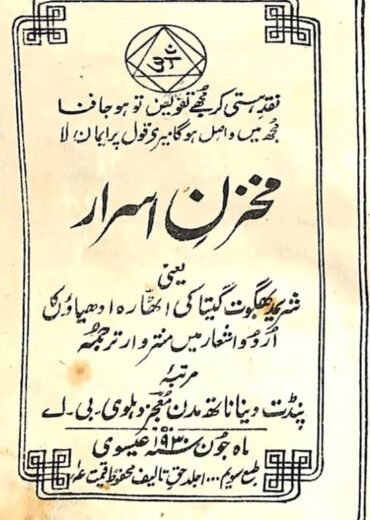 ॐ
نقدِ ہستی کر مجھے تفویض تو ہو جا فنا
مجھ میں واصل ہو گا میرے قول پر ایمان لا
مخزنِ اسرار
یعنی
شریمد بھگوت گیتا کی اٹھارہ ادھیاؤں کا
اُردو اشعار میں منتر وار ترجمہ
مرتبہ
پنڈت دینا ناتھ مدن معجز دہلوی۔ بی۔ اے
ماہ جون سنہ ۱۹۳۰ عیسوی
طبع سویم ۱۰۰۰ جلد حق تالیف محفوظ قیمت